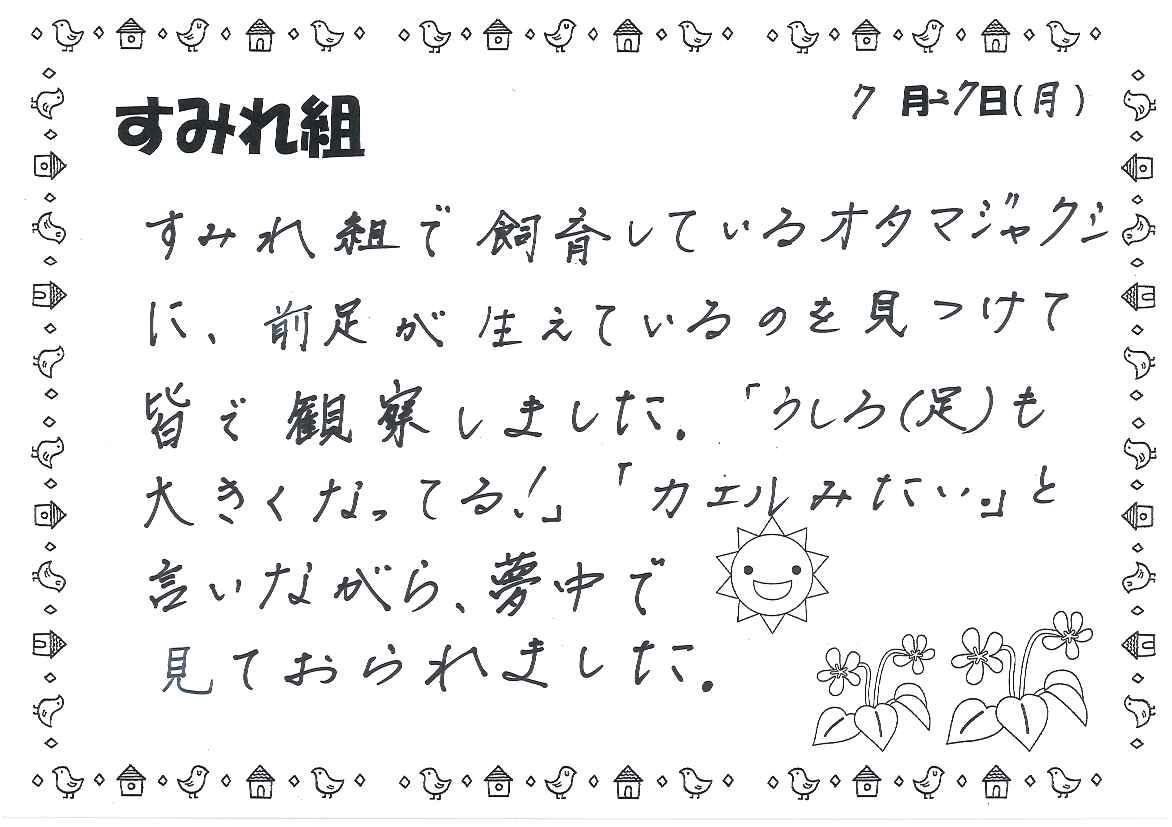 すみれ組
7月27日(月)
すみれ組で飼育しているオタマジャクシ
に、前足が生えているのを見つけて
皆で観察しました。「うしろ(足)も
大きくなってる!」「カエルみたい。」と
言いながら、夢中で
見ておられました。